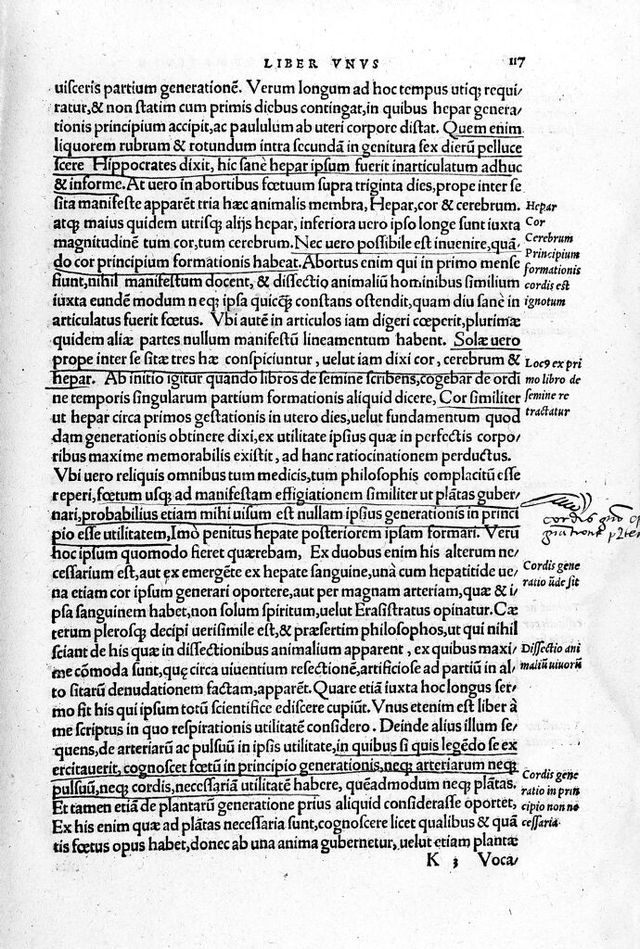 LIBER VNVS 117
uisceris partium generationē. Verum longum ad hoc tempus utiqꝫ requi/
ratur,& non statim cum primis diebus contingat,in quibus hepar genera/
tionis principium accipit,ac paululum ab uteri corpore distat. Quem enim
liquorem rubrum & rotundum intra secundā in genitura sex dierū pelluce
scere Hippocrates dixit, hic sanè hepar ipsum fuerit inarticulatum adhuc
& informe. At uero in abortibus fœtuum supra triginta dies,prope inter se
sita manifeste apparēt tria hæc animalis membra, Hepar,cor & cerebrum.
atqꝫ maius quidem utrisqꝫ alijs hepar, inferiora uero ipso longe sunt iuxta
magnitudinē tum cor,tum cerebrum. Nec uero possibile est inuenire,quā/
do cor principium formationis habeat. Abortus enim qui in primo mense
fiunt,nihil manifestum docent, & dissectio animaliū hominibus similium
iuxta eundē modum neqꝫ ipsa quicqꝫ constans ostendit,quam diu sanè in
articulatus fuerit fœtus. Vbi autē in articulos iam digeri cœperit,plurimæ
quidem aliæ partes nullum manifestū lineamentum habent. Solæ uero
prope inter se sitæ tres hæ conspiciuntur, uelut iam dixi cor, cerebrum &
hepar. Ab initio igitur quando libros de semine scribens,cogebar de ordi
ne temporis singularum partium formationis aliquid dicere, Cor similiter
ut hepar circa primos gestationis in utero dies,uelut fundamentum quod
dam generationis obtinere dixi,ex utilitate ipsius quæ in perfectis corpo/
ribus maxime memorabilis existit, ad hanc ratiocinationem perductus.
Vbi uero reliquis omnibus tum medicis,tum philosophis complacitū esse
reperi,fœtum usqꝫ ad manifestam effigiationem similiter ut plātas guber/
nari,probabilius etiam mihi uisum est nullam ipsius generationis in princi
pio esse utilitatem,Imò penitus hepate posteriorem ipsam formari. Verū
hoc ipsum quomodo fieret quærebam, Ex duobus enim his alterum ne/
cessarium est,aut ex emergēte ex hepate sanguine,unà cum hepatitide ue/
na etiam cor ipsum generari oportere,aut per magnam arteriam,quæ & i/
psa sanguinem habet,non solum spiritum,uelut Erasistratus opinatur. Cæ
terum plerosqꝫ decipi uerisimile est,& præsertim philosophos,ut qui nihil
sciant de his quæ in dissectionibus animalium apparent , ex quibus maxi/
me cōmoda sunt,quę circa uiuentium resectionē,artificiose ad partiū in al/
to sitarū denudationem factam,apparēt. Quare etiā iuxta hoc longus ser/
mo fit his qui ipsum totū scientifice ediscere cupiūt. Vnus etenim est liber à
me scriptus in quo respirationis utilitatē considero . Deinde alius illum se/
quens,de arteriarū ac pulsuū in ipsis utilitate,in quibus si quis legēdo se ex
ercitauerit, cognoscet fœtū in principio generationis,neqꝫ arteriarum neqꝫ
pulsuū,neqꝫ cordis,necessariā utilitatē habere, quēadmodum neqꝫ plātas.
Et tamen etiā de plantarū generatione prius aliquid considerasse oportet,
Ex his enim quæ ad plātas necessaria sunt,cognoscere licet qualibus & quā
tis fœtus opus habet,donec ab una anima gubernetur, uelut etiam plantæ
K 3 Voca/
Hepar
Cor
Cerebrum
Principium
formationis
cordis est
ignotum
Locꝰ ex pri
mo libro de
semine re
tractatur
cordis
Cordis gene
ratio ūde sit
Dissectio ani
maliū uiuorū
Cordis gene
ratio in prin
cipio non ne
cessaria